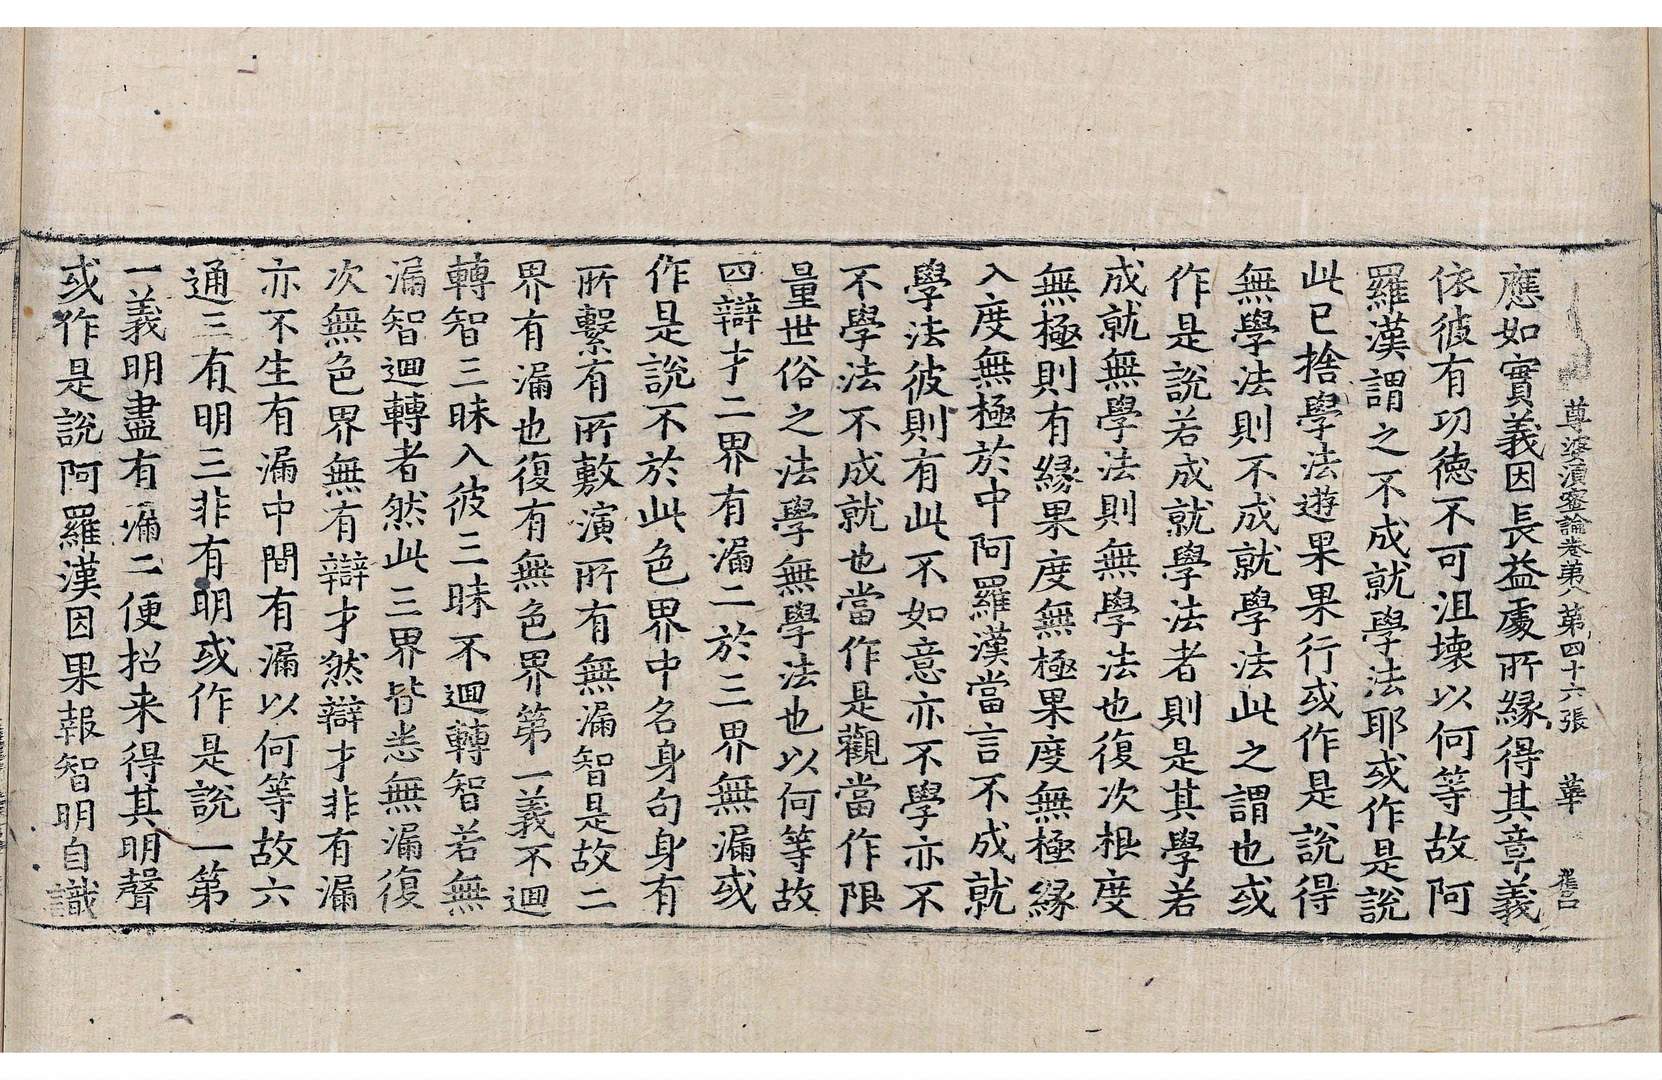 尊婆湏蜜論卷第八 第四十六張 華
應如實義因長益處所緣得其章義
依彼有功德不可沮壞以何等故阿
羅漢謂之不成就學法耶或作是說
此已捨學法遊果果行或作是說得
無學法則不成就學法此之謂也或
作是說若成就學法者則是其學若
成就無學法則無學法也復次根度
無極則有緣果度無極果度無極緣
入度無極於中阿羅漢當言不成就
學法彼則有此不如意亦不學亦不
不學法不成就也當作是觀當作限
量世俗之法學無學法也以何等故
四辯才二界有漏二於三界無漏或
作是說不於此色界中名身句身有
所繫有所敷演所有無漏智是故二
界有漏也復有無色界第一義不迴
轉智三昧入彼三昧不迴轉智若無
漏智迴轉者然此三界皆悉無漏復
次無色界無有辯才然辯才非有漏
亦不生有漏中間有漏以何等故六
通三有明三非有明或作是說一第
一義明盡有漏二便招来得其明聲
或作是說阿羅漢因果報智明自識